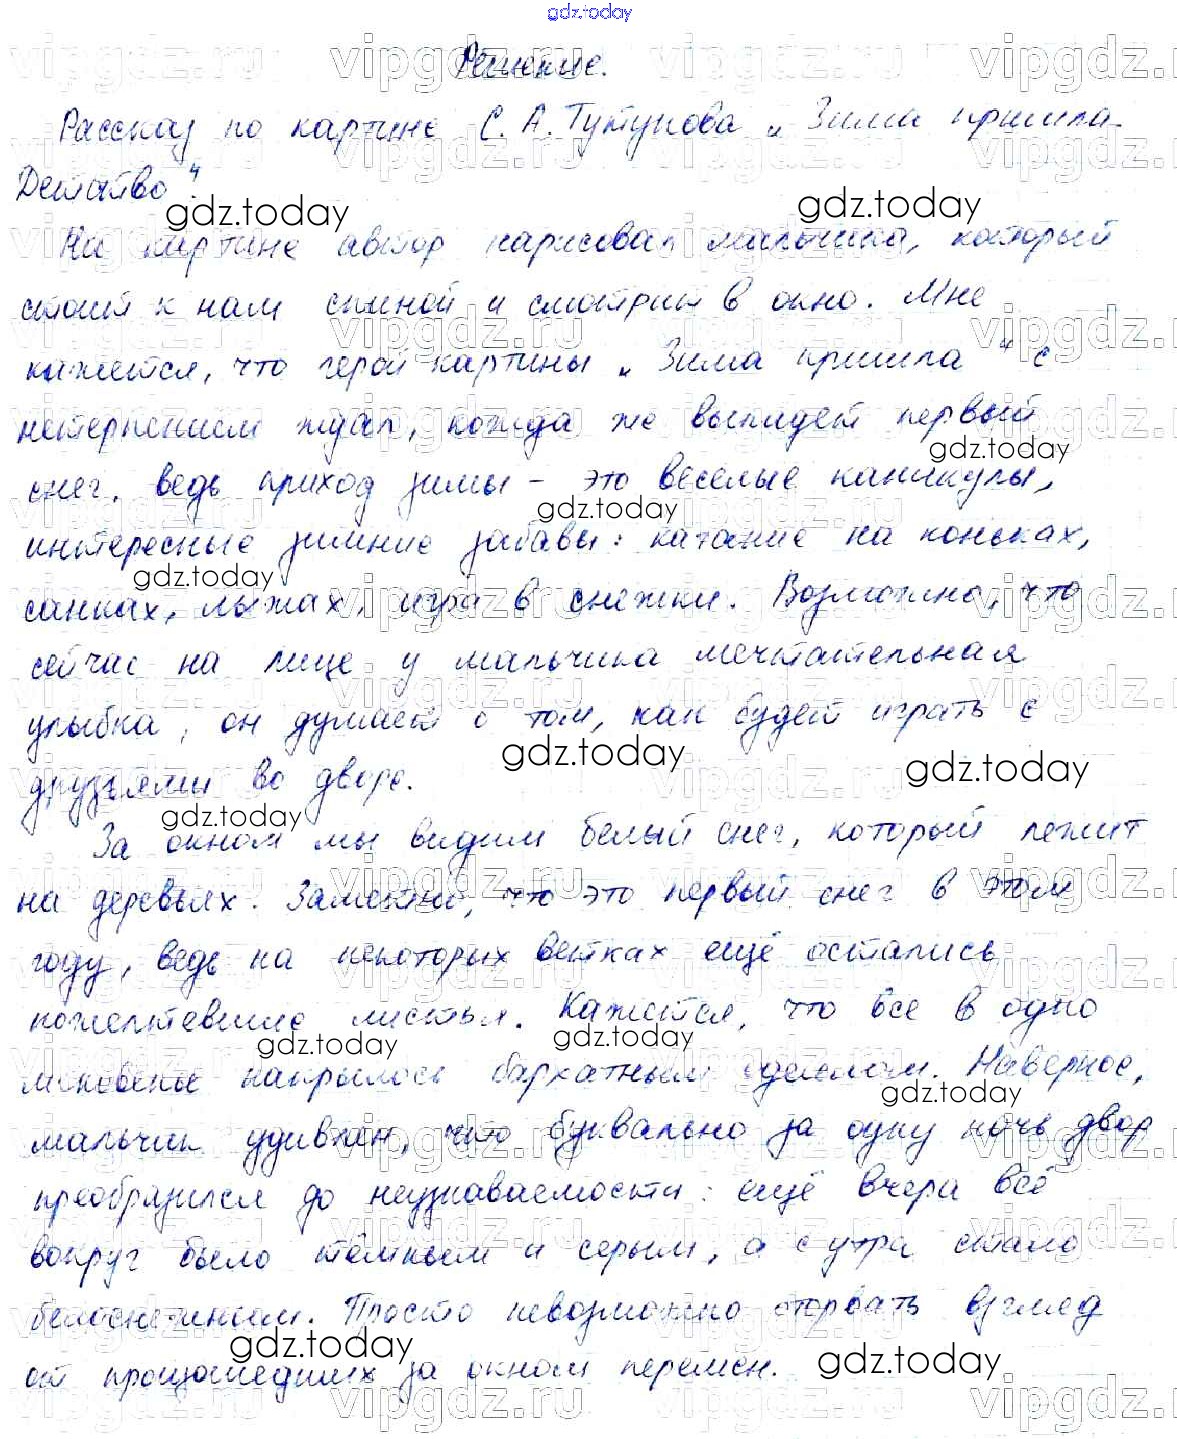 gdz.today
Решение.
Рассказ по картине С. А. Тутунова „Зима пришла.
Детство".
На картине автор нарисовал мальчика, который
стоит к нам спиной и смотрит в окно. Мне
кажется, что герой картины „Зима пришла" с
нетерпением ждал, когда же выпадет первый
снег, ведь приход зимы - это весёлые каникулы,
интересные зимние забавы: катание на коньках,
санках, лыжах, игра в снежки. Возможно, что
сейчас на лице у мальчика мечтательная
улыбка, он думает о том, как будет играть с
друзьями во дворе.
За окном мы видим белый снег, который лежит
на деревьях. Заметно, что это первый снег в этом
году, ведь на некоторых ветках ещё остались
пожелтевшие листья. Кажется, что все в одно
мгновенье накрылось бархатным одеялом. Наверное,
мальчик удивлён, что буквально за одну ночь двор
преобразился до неузнаваемости: ещё вчера всё
вокруг было тёмным и серым, а с утра стало
белоснежным. Просто невозможно оторвать взгляд
от произошедших за окном перемен.